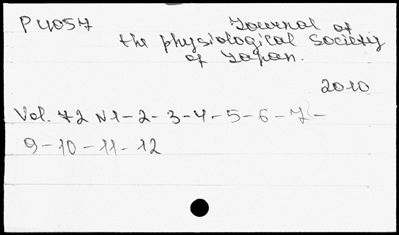 P4057 Journal of
the physiological Society
of Japan.
2010
Vol. 72 N1-2-3-4-5-6-7-
9-10-11-12